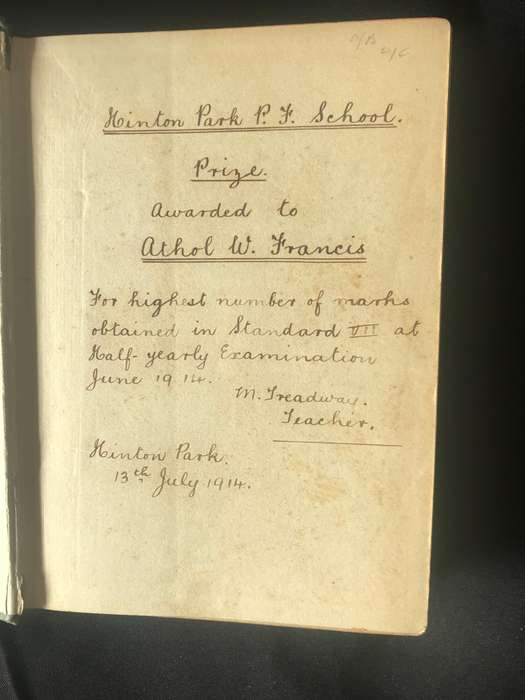 Hinton Park P. F. School.
Prize.
Awarded to
Athol W. Francis
For highest number of marks
obtained in Standard VII at
Half-yearly Examination
June 1914.
M. Treadway.
Teacher.
Hinton Park.
13th July 1914.